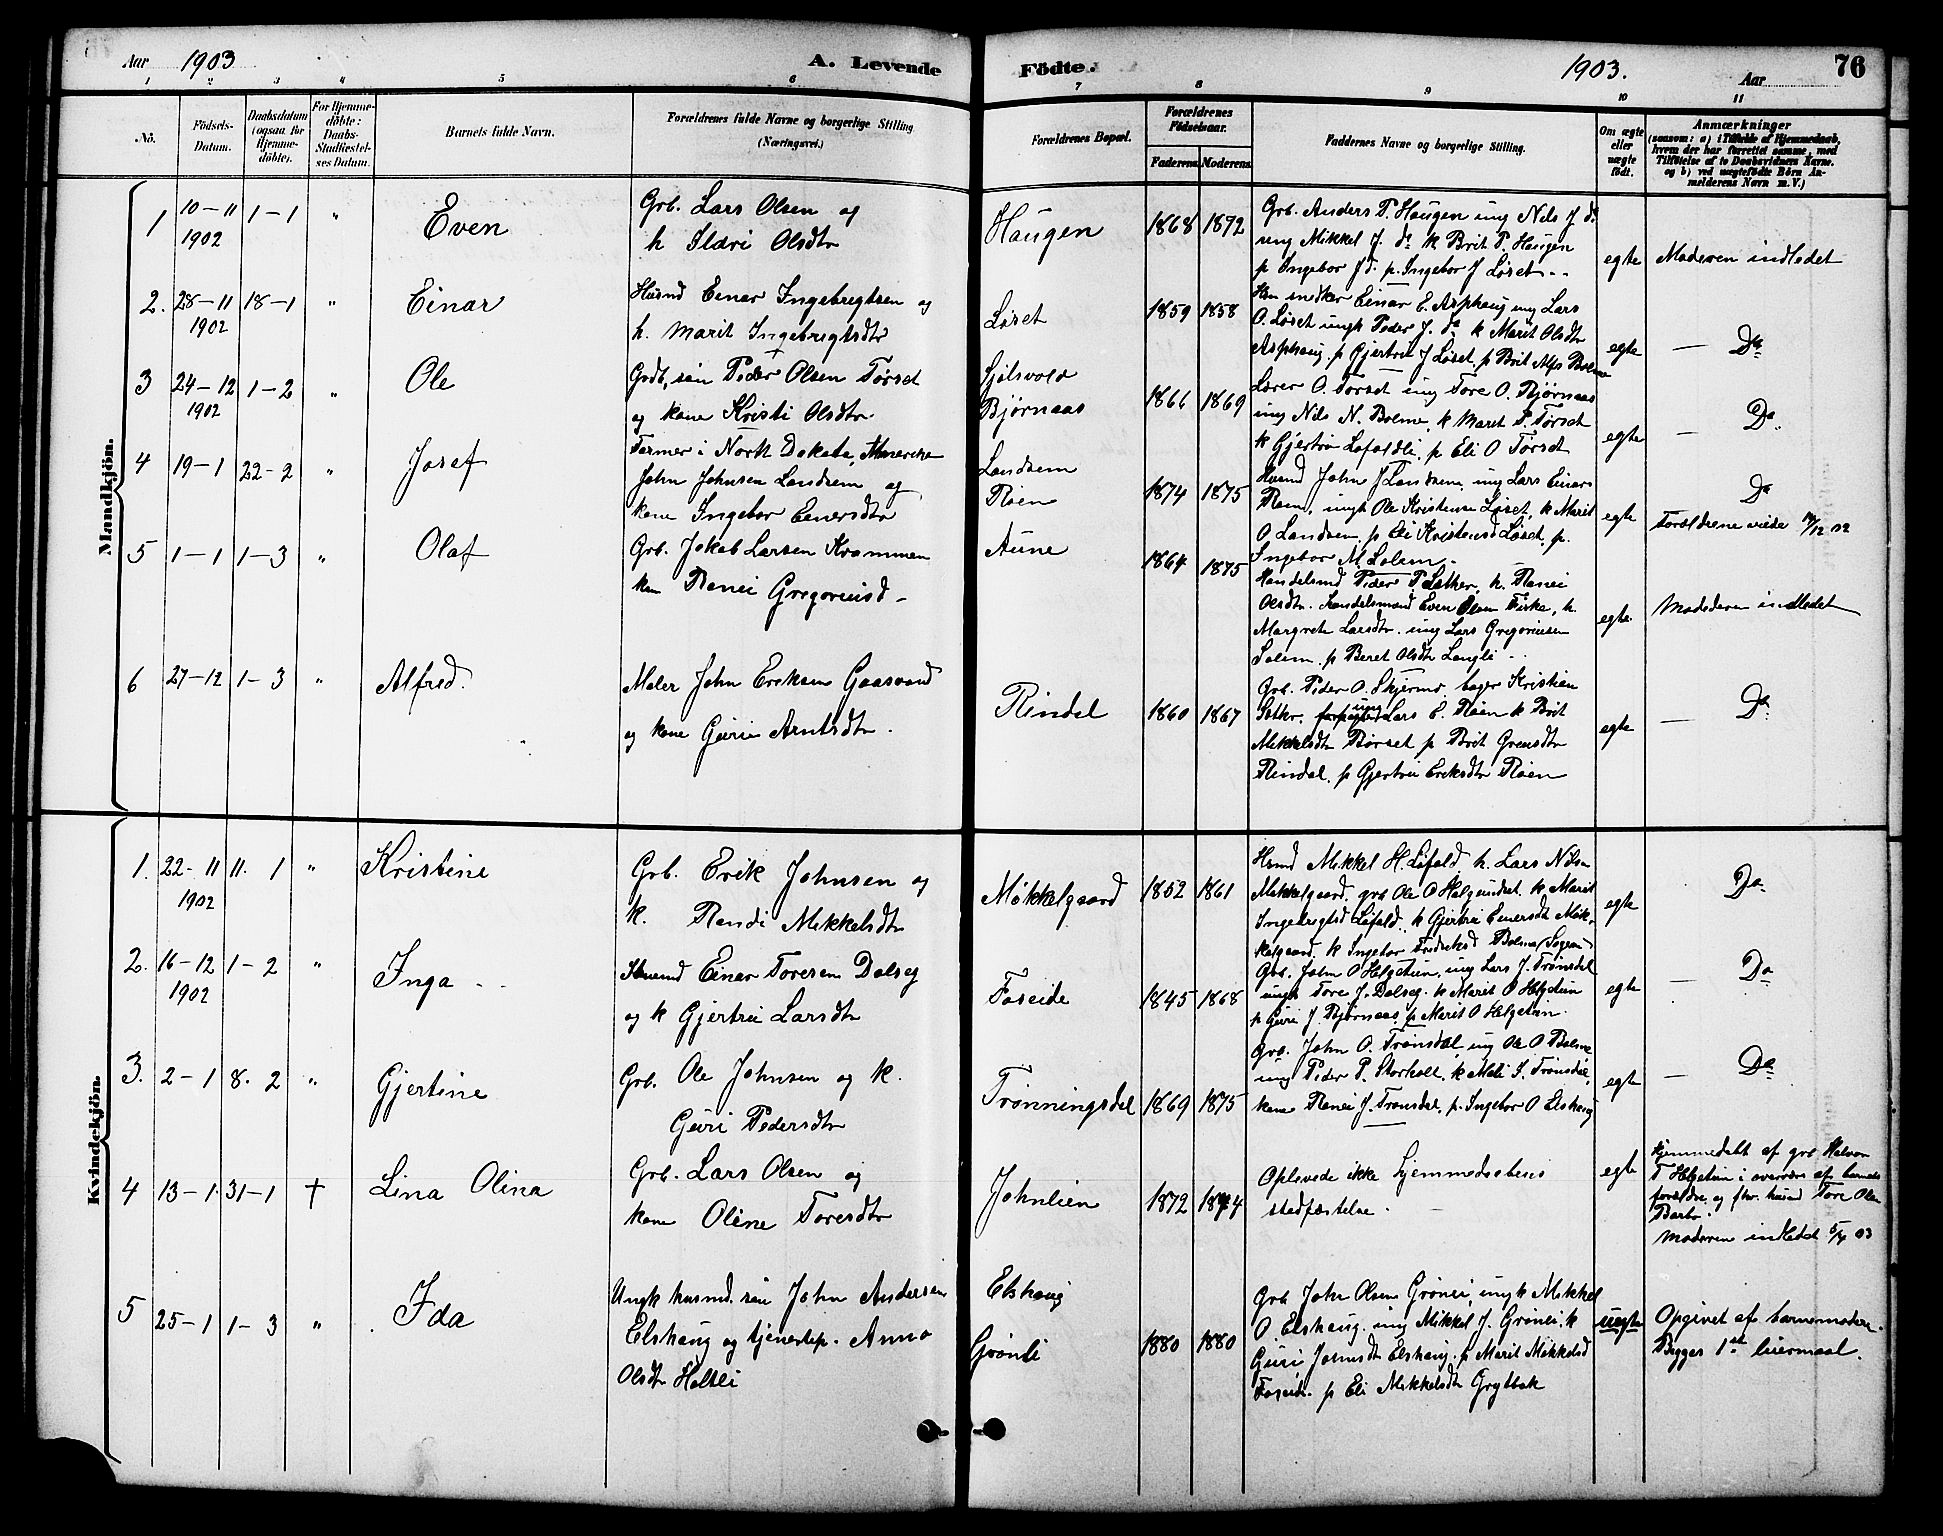 Aar 1903
A. Levende
Födte.
1903.
Aar
76
1 2 3 4 5 6 7 8 9 10 11
No.
Födsels-
Datum.
Daabsdatum
(ogsaa for
Hjemme-
döbte).
For Hjemme-
döbte:
Daabs-
Stadfæstel-
ses Datum.
Barnets fulde Navn.
Forældrenes fulde Navne og borgerlige Stilling
(Næringsvei.)
Forældrenes Bopæl.
Forældrenes
Födselsaar.
Faderens. Moderens.
Faddernes Navne og borgerlige Stilling.
Om ægte
eller
uægte
født.
Anmærkninger
(saasom: a) i Tilfælde af Hjemmedaab,
hvem der har forrettet samme, med
Tilföielse af to Daabsvidners Navne.
og b) ved uægtefödte Börn An-
melderens Navn m. V.)
Mandkjön.
1 10-11 1-1 " Even
1902
Grb. Lars Olsen og
h Ildri Olsdtr
Haugen 1868 1872
Grb. Anders P. Haugen ung Nils J ds.
ung Mikkel J. ds k Brit P. Haugen
p Ingebor J d. p. Ingebor J Løset
egte Moderen indledet
2. 28-11 18-1 " Einar
1902
Husmd Einar Ingebrigtsen og
h. Marit Ingebrigtsdtr
Løset 1859 1858
snedker Einar E. Asphaug ung Lars
O. Løset ungk Peder J. ds k Marit Olsdtr
Asphaug. p Gjertru J Løset. p Brit Bolme
egte — Do
3 24-12 1-2 " Ole
1902
Grdb. søn Peder Olsen Tørset
og kone Kristi Olsdtr.
Bjørnaas 1866 1869
Lærer O. Tørset ung Tore O. Bjørnaas
ung Nils N. Bolme, k Marit P. Tørset
k Gjertru Løfaldli, p Eli O Tørset
egte — Do
4 19-1 22-2 " Josef
Farmer i North Dakota, Amerika
John Johnsen Landsem og
kone Ingebor Einersdtr
Landsem
Røen 1874 1875
Husmd John J Landsem, ung Lars Einars
Røen, ungk Ole Kristensen Løset, k Marit
O Landsem, p Eli Kristensd Løset, p.
Ingebor M Solem.
egte Do
Forældrene viede 12 02
5 1-1 1-3 " Olaf
Grb. Jakob Larsen Krammen
kon Ranei Gregoriusd
Aune 1864 1875
Handelsmd Peder P Sæther, h. Ranei
Olsdtr. Handelsmand Even Olsen Firke, h.
Margrete Larsdtr. ung Lars Gregoriusen
Solem. p Beret Olsdtr Langli
egte. Moderen indledet
6 27-12 1-3 " Alfred.
Maler John Eriksen Gaasvand
og kone Guri Arntsdtr.
Rindal 1860 1867
Grb. Peder O. Skjermo. bager Kristian
Sæthr. ung Lars E. Røen k Brit
Mikkelsdtr Børset p Brit
Rindal, p Gjertru Eriksdtr Røen
egte — Do
Kvindekjön.
1. 22-11 11. 1 " Kristine
1902
Grb. Erik Johnsen og
k. Randi Mikkelsdtr
Møkkelgaard 1852 1861
Husmd Mikkel H. Løfald h. Lars Nilsen
Møkkelgaard, grb Ole O Helgetunet. k Marit
Ingebrigtsd Løfald. k Gjertru Einersdt Møk-
kelgaard k Ingebor Fredriksd Bolme
egte Do
2. 16-12 1-2 " Inga
1902
Husmd Einar Toresen Dalseg
og k Gjertru Larsdtr
Foseide 1845 1868
Grb. John O Helgetun, ung Lars J. Trønsdal
ungk Tore J. Dalseg. k Marit O Helgetun
k Guri J. Bjørnaas, p Marit O Helgetun.
egte — Do
3. 2-1 8. 2 " Gjertine
Grb. Ole Johnsen og k.
Guri Pedersdtr
Trønningsdal 1869 1875
Grb. John O. Trønsdal ung Ole O Bolme
ung Peder P. Storholt, k Mali S. Trønsdal,
kone Ranei J. Trønsdal, p. Ingebor O Elshaug
egte — Do
4 13-1 31-1 † Lina Olina
Grb. Lars Olsen og
kone Oline Toresdtr
Johnlien 1872 1874
Oplevede ikke hjemmedaabens
stadfæstelse.
egte
Hjemmedøbt af grb Halvor
T Helgetun i overvær af barnets
forældre og fhv. husmd Tore Olsen
Barbo.
Moderen indledet 5/4 03
5 25-1 1-3 " Ida
Ungk husmd. søn John Andersen
Elshaug og tjenestep. Anna
Olsdtr Holtli
Elshaug
Grønli 1880 1880
Grb John Olsen Grønli, ungk Mikkel
O. Elshaug, ung Mikkel J. Grønli. k
Guri Johnsdt Elshaug. p Marit Mikkelsd
Foseide. p Eli Mikkelsdt Grytbak
uegte
Opgivet af barnemoder.
Begges 1ste leiermaal.